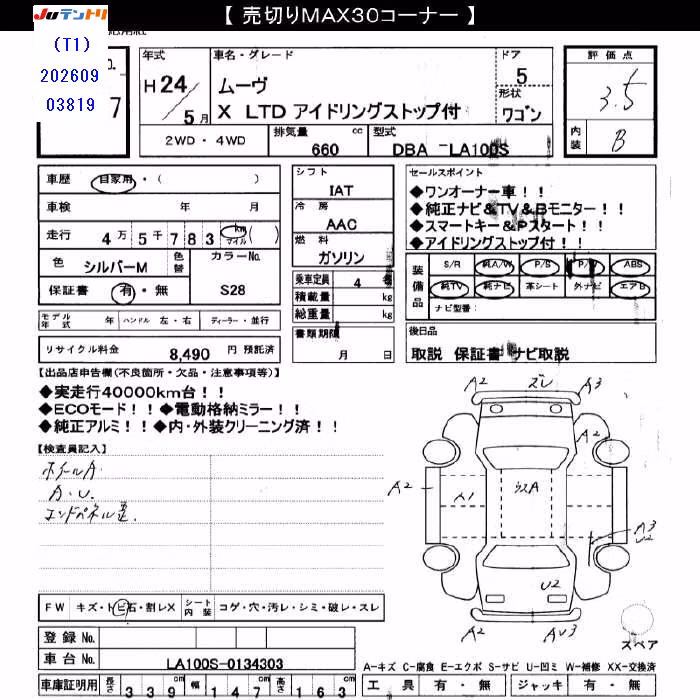 【 売切りMAX30コーナー 】
JUテントリ
(T1)
202609
03819
No.
7
年式
H 24 / 5 月
車名・グレード
ムーヴ
X LTD アイドリングストップ付
ドア
5
形状
ワゴン
評価点
3.5
内装
B
2WD・4WD
排気量
660 cc
型式
DBA -LA100S
車歴
自家用・( )
車検 年 月
走行 4万5千783 km マイル ( )
色
シルバーM
色替
カラーNo.
S28
保証書
有・無
シフト
IAT
冷房
AAC
燃料
ガソリン
乗車定員 4
積載量 kg
総重量 kg
書類期限
月 日
セールスポイント
◆ワンオーナー車！！
◆純正ナビ&TV&Bモニター！！
◆スマートキー&Pスタート！！
◆アイドリングストップ付！！
装備品
S/R 純A/W P/S P/W ABS
純TV 純ナビ 革シート 外ナビ エアB
ナビ型番：
モデル年式 年 ハンドル 左・右 ディーラー・並行
リサイクル料金 8,490 円 預託済
後日品
取説 保証書 ナビ取説
【出品店申告欄(不良箇所・欠品・注意事項等)】
◆実走行40000km台！！
◆ECOモード！！◆電動格納ミラー！！
◆純正アルミ！！◆内・外装クリーニング済！！
【検査員記入】
ホイールA
A・U.
エンドパネル歪.
A2 ズレ A3
A2
A2
A1
ウスA
A3
U2
U2
A2 AU3
スペア
FW キズ・トビ石・割レX
シート内装 コゲ・穴・汚レ・シミ・破レ・スレ
登録No.
車台No. LA100S-0134303
車庫証明用 長さ 339cm 幅 147cm 高さ 163cm
A-キズ C-腐食 E-エクボ S-サビ U-凹ミ W-補修 XX-交換済
工具 有・無 ジャッキ 有・無